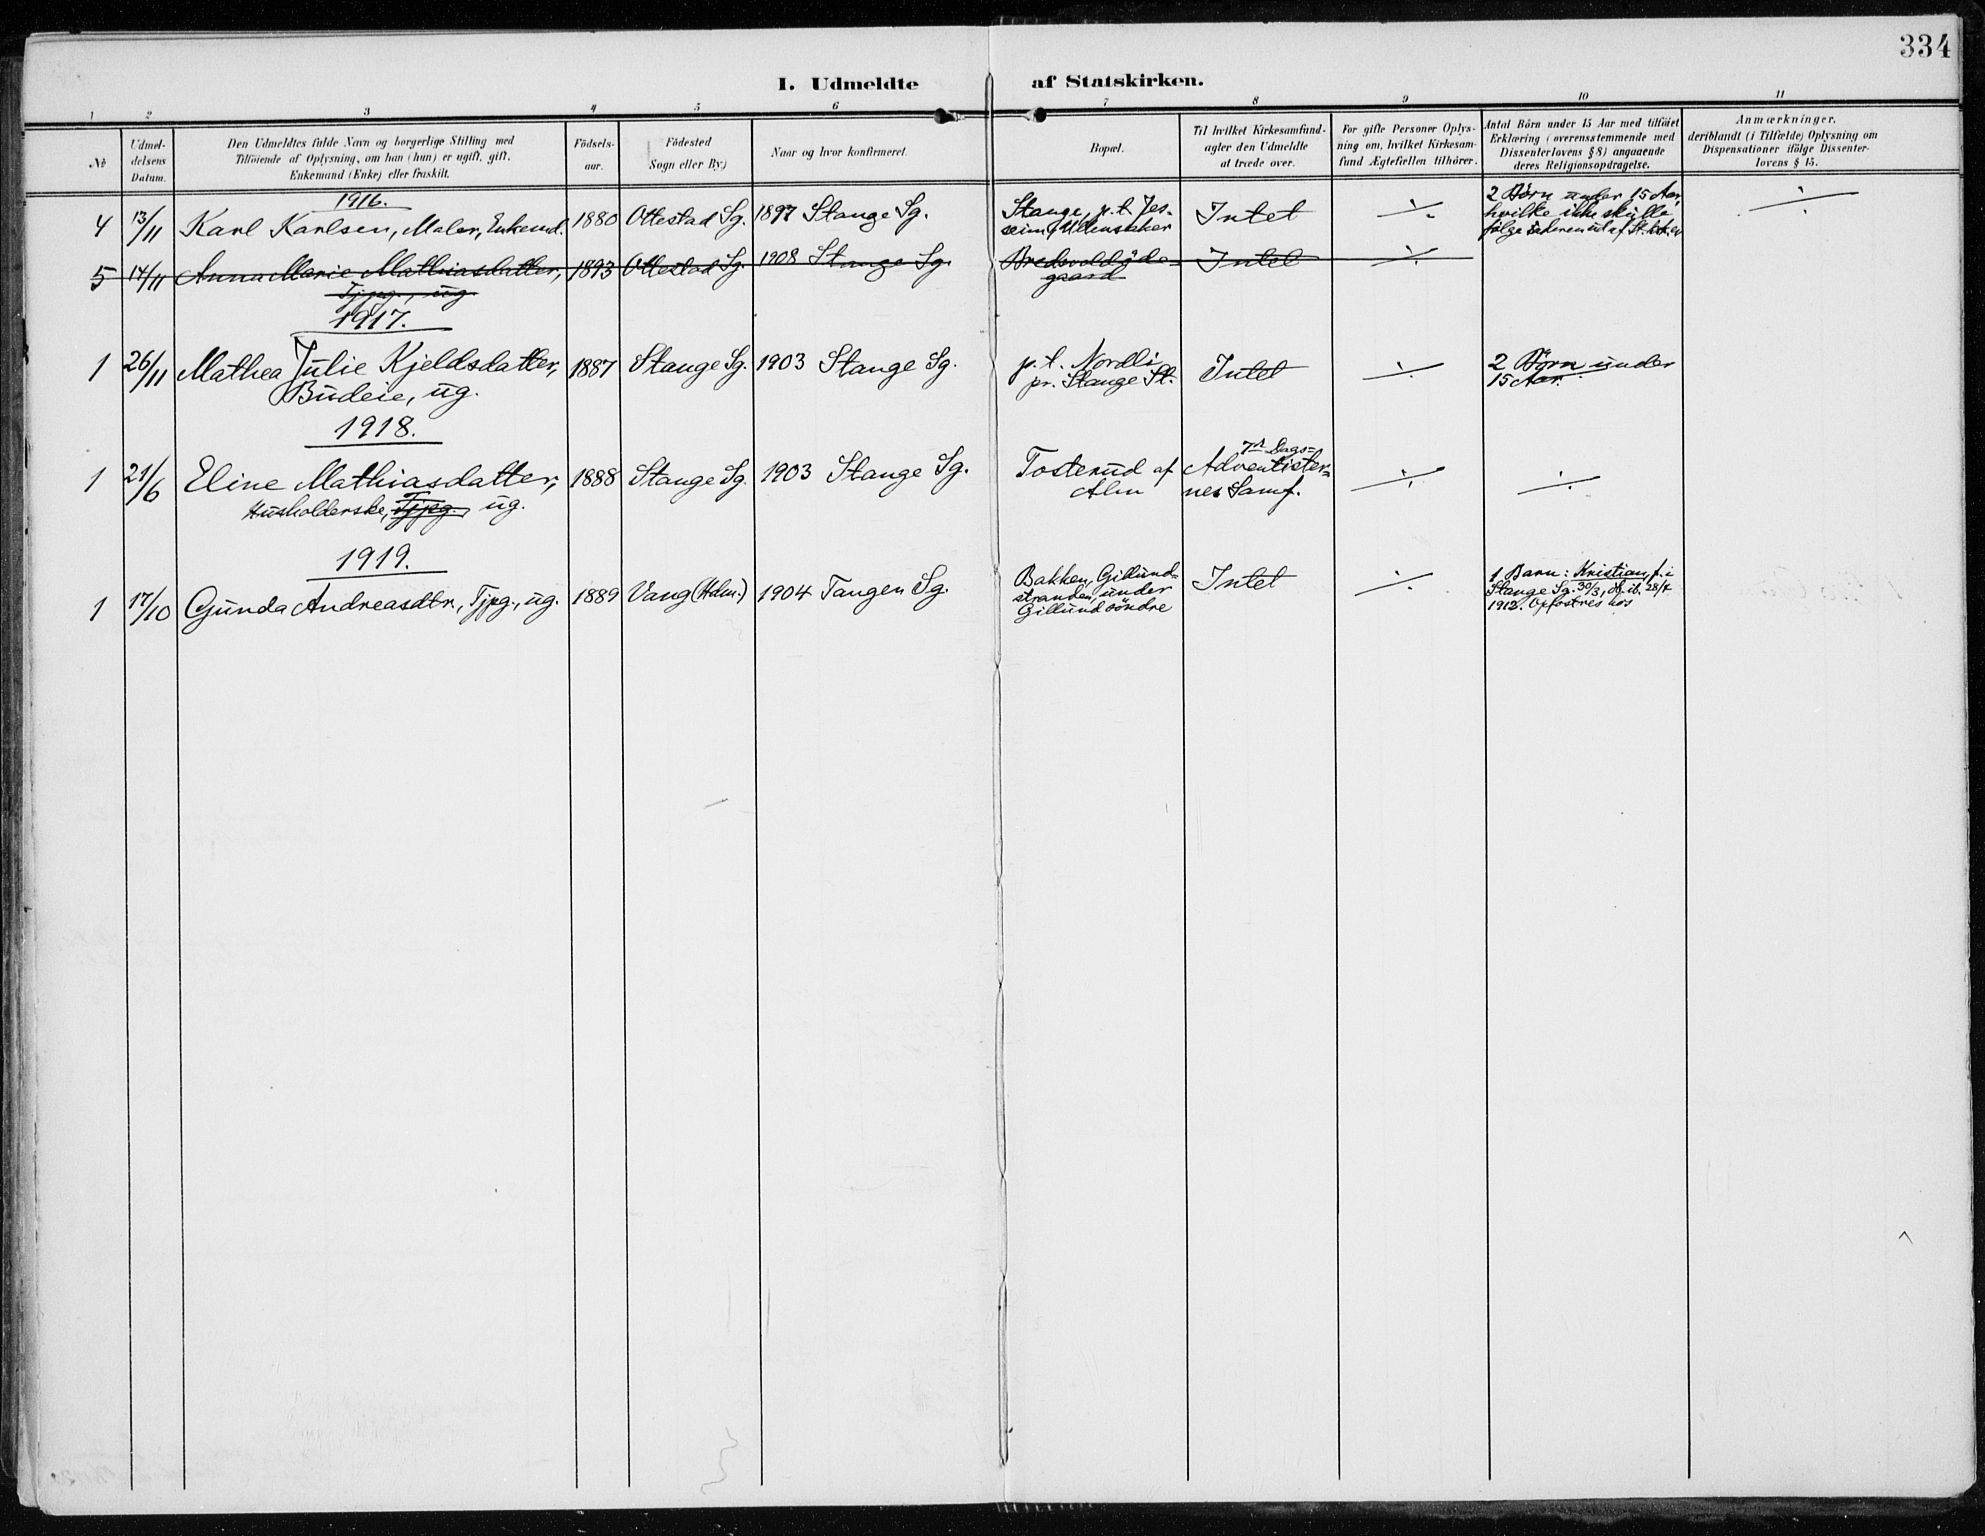 334
I. Udmeldte af Statskirken.
1 2 3 4 5 6 7 8 9 10 11
№
Udmel-
delsens
Datum.
Den Udmeldtes fulde Navn og borgerlige Stilling med
Tilföiende af Oplysning, om han (hun) er ugift, gift,
Enkemand (Enke) eller fraskilt.
Födsels-
aar.
Födested
Sogn eller By.)
Naar og hvor konfirmeret.
Bopæl.
Til hvilket Kirkesamfund-
agter den Udmeldte
at træde over.
For gifte Personer Oplys-
ning om, hvilket Kirkesam-
fund Ægtefællen tilhörer.
Antal Börn under 15 Aar med tilföiet
Erklæring (overensstemmende med
Dissenterlovens § 8) angaaende
deres Religionsopdragelse.
Anmærkninger,
deriblandt (i Tilfælde) Oplysning om
Dispensationer ifölge Dissenter-
lovens § 15.
1916.
4 13/11 Karl Karlsen, Maler, Enkemd. 1880 Ottestad Sg. 1897 Stange Sg.
Stange, p.t. Jes-
seim, Ullensaker
Intet ÷
2 Börn under 15 Aar,
hvilke ikke skulle
fölge Faderen ud af St.k.
÷
5 14/11 Anna Marie Mathiasdatter,
Tjpg., ug.
1893 Ottestad Sg. 1908 Stange Sg.
Bredvoldöde-
gaard
Intet ÷
1917.
1 26/11 Mathea Julie Kjeldsdatter,
Budeie, ug.
1887 Stange Sg. 1903 Stange Sg.
p.t. Nordli
pr. Stange St.
Intet ÷
2 Börn under
15 Aar.
1918.
1 21/6 Eline Mathiasdatter,
Husholderske, Tjpg., ug.
1888 Stange Sg. 1903 Stange Sg.
Tosterud af
Alm
7de Dags-
Adventister-
nes Samf.
÷ ÷
1919.
1 17/10 Gunda Andreasdtr., Tjpg., ug. 1889 Vang (Hdm.) 1904 Tangen Sg.
Bakken, Gillund-
stranden, under
Gillund söndre
Intet ÷
1 Barn: Kristian, f. i
Stange Sg. 30/3, db. ib. 28/4
1912. Opfostres hos